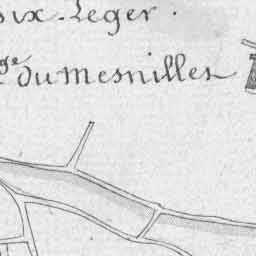 ix. Leger.
ge du Mesnilles